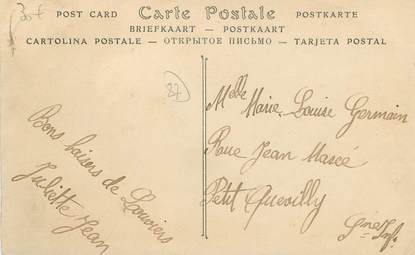 POST CARD Carte Postale POSTKARTE
BRIEFKAART — POSTKAART
CARTOLINA POSTALE — ОТКРЫТОЕ ПИСЬМО — TARJETA POSTAL
27
Bons baisers de Louviers
Juliette Jean
Melle Marie Louise Germain
Rue Jean Macé
Petit Quevilly
Sne Inf.